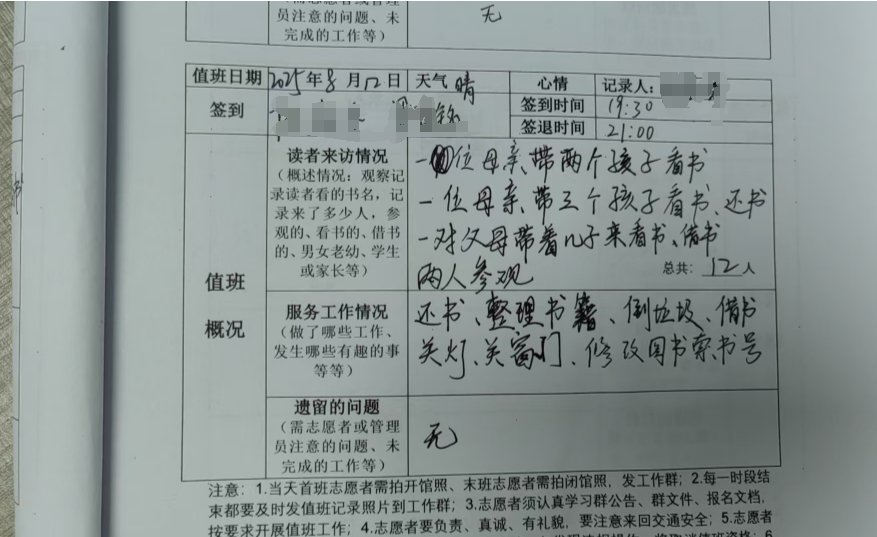 员注意的问题、未
完成的工作等）
无
值班日期 2025年8月12日 天气晴 心情 记录人：
签到 签到时间 19:30
签退时间 21:00
读者来访情况
（概述情况：观察记
录读者看的书名，记
录来了多少人，参
观的、看书的、借书
的、男女老幼、学生
或家长等）
一位母亲带两个孩子看书
一位母亲带三个孩子看书、还书
一对父母带着儿子来看书、借书
两人参观
总共：12人
值班
概况
服务工作情况
（做了哪些工作、
发生哪些有趣的事
等等）
还书、整理书籍、倒垃圾、借书
关灯、关窗门、修改图书索书号
遗留的问题
（需志愿者或管理
员注意的问题、未
完成的工作等）
无
注意：1.当天首班志愿者需拍开馆照、末班志愿者需拍闭馆照，发工作群；2.每一时段结
束都要及时发值班记录照片到工作群；3.志愿者须认真学习群公告、群文件、报名文档，
按要求开展值班工作；4.志愿者要负责、真诚、有礼貌，要注意来回交通安全；5.志愿者